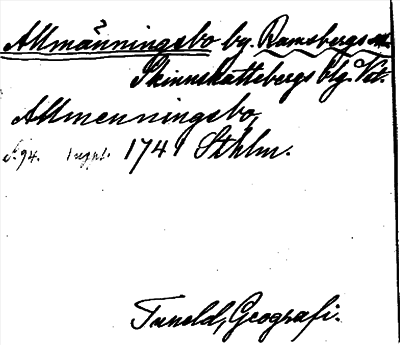 Allmänningsbo by. Ramsbergs sn.
Skinnskattebergs blg. Vst.
Allmenningsbo,
s. 94. 1741 Sthlm.
Tuneld, Geografi.